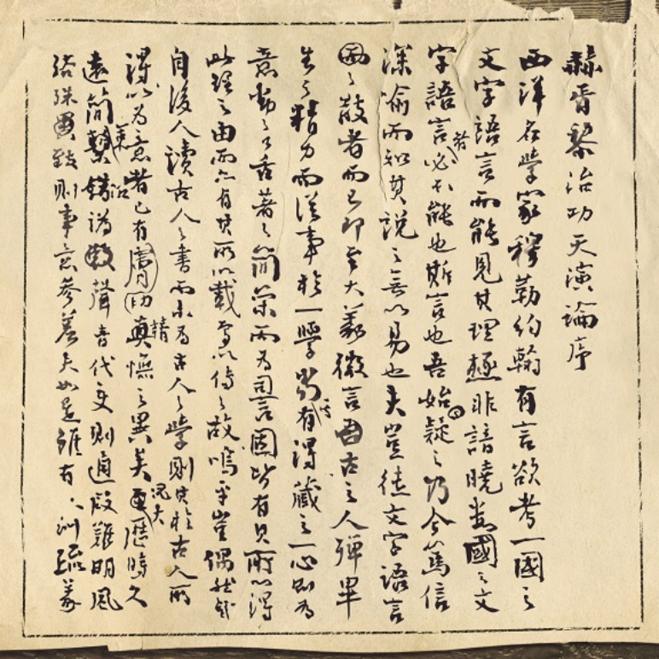 赫胥黎治功天演論序
西洋名學家穆勒約翰有言欲考一國之
文字語言而能見其理極非諳曉數國之文
字語言者必不能也斯言也吾始疑之乃今篤信
深喻而知其說之無以易也夫豈徒文字語言
之散者而已即至大義微言古之人殫畢
生之精力而從事於一學當其有得藏之一心則為
意動之口舌著之簡策而為詞固皆有其所以得
此理之由而亦有其所以載焉以傳之故嗚乎豈偶然哉
自後人讀古人之書而未為古人之學則其於古人所
得以為意者已有膚切精憮之異矣況夫歷時久
遠簡牘沿訛聲音代變則通叚難明風
俗殊致則事意參差夫如是雖有訓疏義